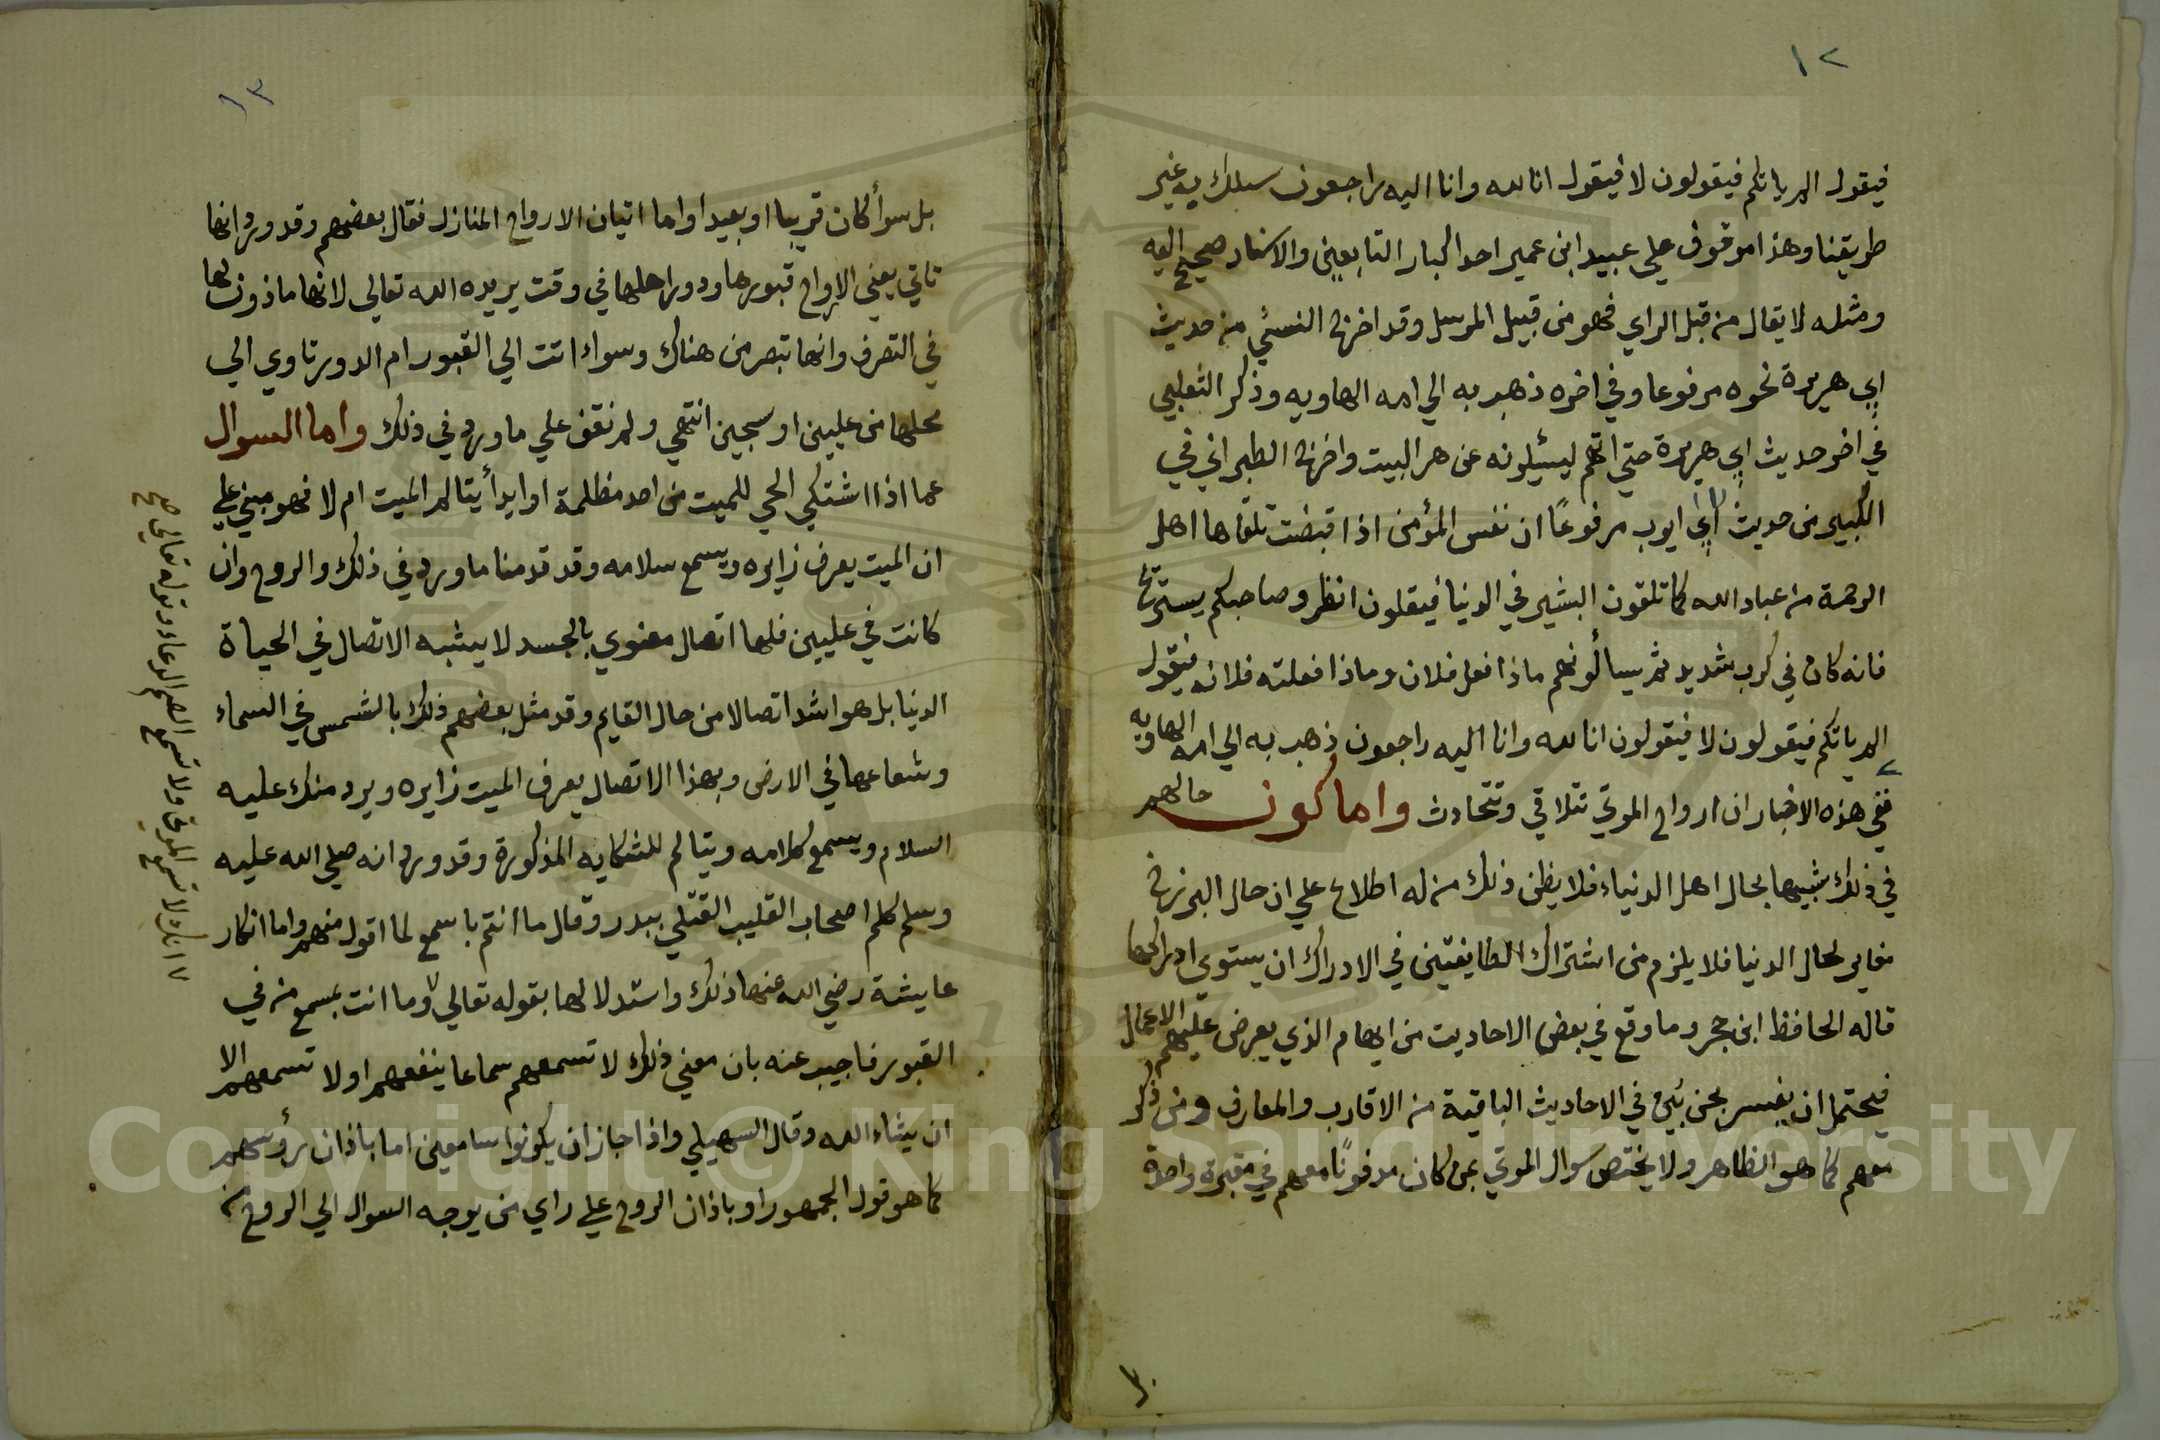 ١٢
فيقول الم ياتكم فيقولون لا فيقول انا لله وانا اليه راجعون سلك به غير
طريقنا وهذا موقوف علي عبيد ابن عمير احد الكبار التابعين والاسناد صحيح اليه
ومثله لا يقال من قبل الراي فهو من قبيل المرسل وقد اخرج النسئي من حديث
ابي هريرة نحوه مرفوعا وفي اخره ذهب به الي امه الهاويه وذكر الثعلبي
في اخر حديث ابي هريرة حتي انهم ليسئلونه عن هر البيت واخرج الطبراني في
الكبير من حديث ابي ايوب مرفوعًا ان نفس المؤمن اذا قبضت تلقاها اهل
الرحمة من عباد الله كما تلقون البشير في الدنيا فيقلون انظروصاحبكم يستريح
فانه كان في كرب شديد ثم يسالونهم ماذا فعل فلان وماذا فعلته فلانه فيقول
الم ياتكم فيقولون لا فيقولون انا لله وانا اليه راجعون ذهب به الي امه الهاويه
ففي هذه الاخبار ان ارواح الموتي تتلاقي وتتحادث واما كون حالهم
في ذلك شبيها بحال اهل الدنياء فلا يظن ذلك من له اطلاع علي ان حال البرزخ
مغاير لحال الدنيا فلا يلزم من اشتراك الطايفتين في الادراك ان يستوي ادراكها
قاله الحافظ ابن حجر وما وقع في بعض الاحاديث من ابهام الذي يعرض عليهم الاعمال
فيحتمل ان يفسر بمن بُيّن في الاحاديث الباقية من الاقارب والمعارف ومن ذكر
معهم كما هو الظاهر ولا يختص سوال الموتي بمن كان مدفونًا معهم في مقبرة واحدة
١٣
بل سوأ كان قريبا او بعيدا واما اتيان الارواح المنازل فقال بعضهم وقد ورد انها
تاتي يعني الارواح قبورها ودور اهلها في وقت يريده الله تعالي لانها ماذون لها
في التصرف وانها تبصر من هناك وسواء اتت الي القبور ام الدور تاوي الي
محلها من عليين او سجين انتهي ولم نقف علي ما ورد في ذلك واما السوال
عما اذا اشتكي الحي للميت من احد مظلمة او ايذأ يتالم الميت ام لا فهو مبني علي
ان الميت يعرف زايره ويسمع سلامه وقد قدمنا ما ورد في ذلك والروح وان
كانت في عليين فلها اتصال معنوي بالجسد لا يشبه الاتصال في الحياة
الدنيا بل هو اشد اتصالا من حال القايم وقد مثل بعضهم ذلك بالشمس في السماء
وشعاعها في الارض وبهذا الاتصال يعرف الميت زايره ويرد منك عليه
السلام ويسمع كلامه ويتالم للشكايه المذكورة وقد ورد انه صلي الله عليه
وسلم كلم اصحاب القليب القتلي ببدر وقال ما انتم باسمع لما اقول منهم واما انكار
عايشة رضي الله عنها ذلك واستدلالها بقوله تعالي وما انت بمسمع من في
القبور فاجيب عنه بان معني ذلك لا تسمعهم سماعا ينفعهم او لا تسمعهم الا
ان يشاء الله وقال السهيلي واذا جاز ان يكونوا سامعين اما باذان رؤسهم
كما هو قول الجمهور او باذان الروح علي راي من يوجه السوال الي الروح من
انك لا تسمع الموتي ولا تسمع الصم الدعاء وقوله تعالي صح